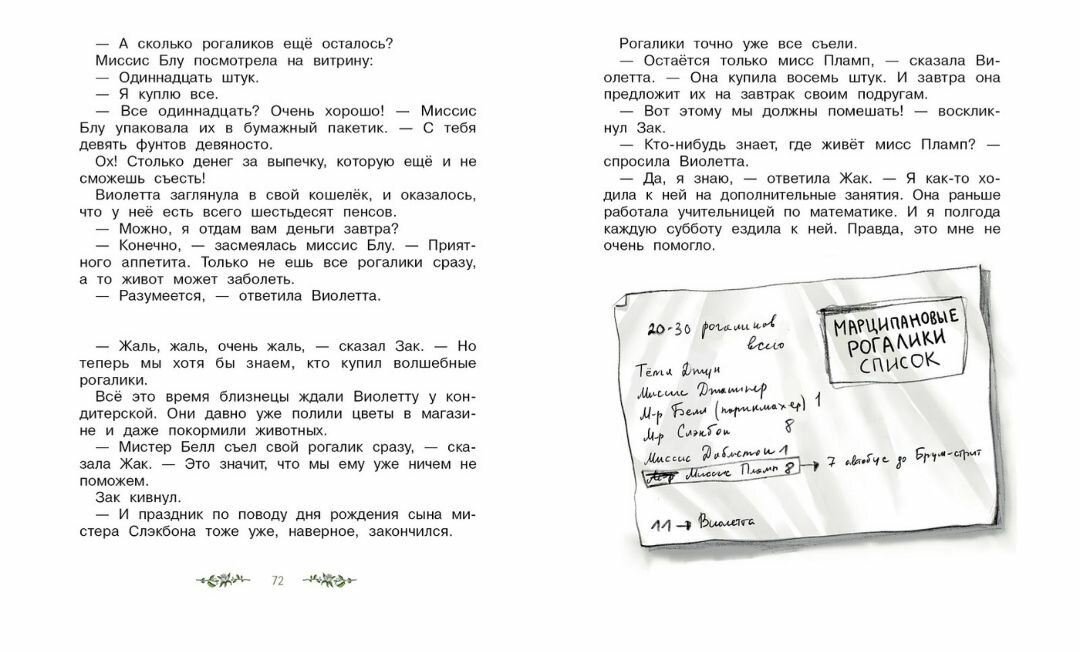 — А сколько рогаликов ещё осталось?
Миссис Блу посмотрела на витрину:
— Одиннадцать штук.
— Я куплю все.
— Все одиннадцать? Очень хорошо! — Миссис
Блу упаковала их в бумажный пакетик. — С тебя
девять фунтов девяносто.
Ох! Столько денег за выпечку, которую ещё и не
сможешь съесть!
Виолетта заглянула в свой кошелёк, и оказалось,
что у неё есть всего шестьдесят пенсов.
— Можно, я отдам вам деньги завтра?
— Конечно, — засмеялась миссис Блу. — Прият-
ного аппетита. Только не ешь все рогалики сразу,
а то живот может заболеть.
— Разумеется, — ответила Виолетта.
— Жаль, жаль, очень жаль, — сказал Зак. — Но
теперь мы хотя бы знаем, кто купил волшебные
рогалики.
Всё это время близнецы ждали Виолетту у кон-
дитерской. Они давно уже полили цветы в магази-
не и даже покормили животных.
— Мистер Белл съел свой рогалик сразу, — ска-
зала Жак. — Это значит, что мы ему уже ничем не
поможем.
Зак кивнул.
— И праздник по поводу дня рождения сына ми-
стера Слэкбона тоже уже, наверное, закончился.
72
Рогалики точно уже все съели.
— Остаётся только мисс Пламп, — сказала Ви-
олетта. — Она купила восемь штук. И завтра она
предложит их на завтрак своим подругам.
— Вот этому мы должны помешать! — восклик-
нул Зак.
— Кто-нибудь знает, где живёт мисс Пламп? —
спросила Виолетта.
— Да, я знаю, — ответила Жак. — Я как-то хо-
дила к ней на дополнительные занятия. Она раньше
работала учительницей по математике. И я полгода
каждую субботу ездила к ней. Правда, это мне не
очень помогло.
МАРЦИПАНОВЫЕ
РОГАЛИКИ
СПИСОК
20-30 рогаликов
всего
Тётя Джун
Миссис
М-р Белл (парикмахер) 1
М-р Слэкбон 8
Миссис 1
Миссис Пламп 8 → 7 автобус до Брум-стрит
11 → Виолетта